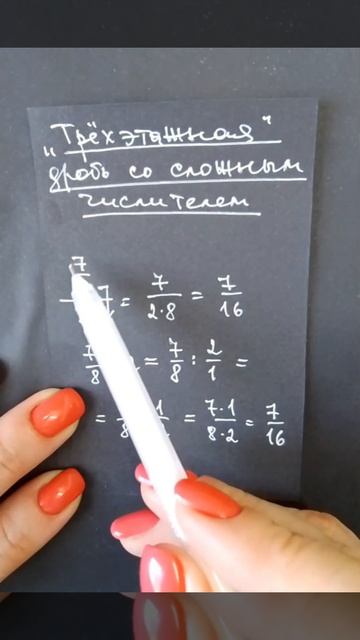 „Трёхэтажная"
дробь со сложным
числителем
7
= 7/(2·8) = 7/16
7/8 = 7/8 : 2/1 =
= 1 = (7·1)/(8·2) = 7/16